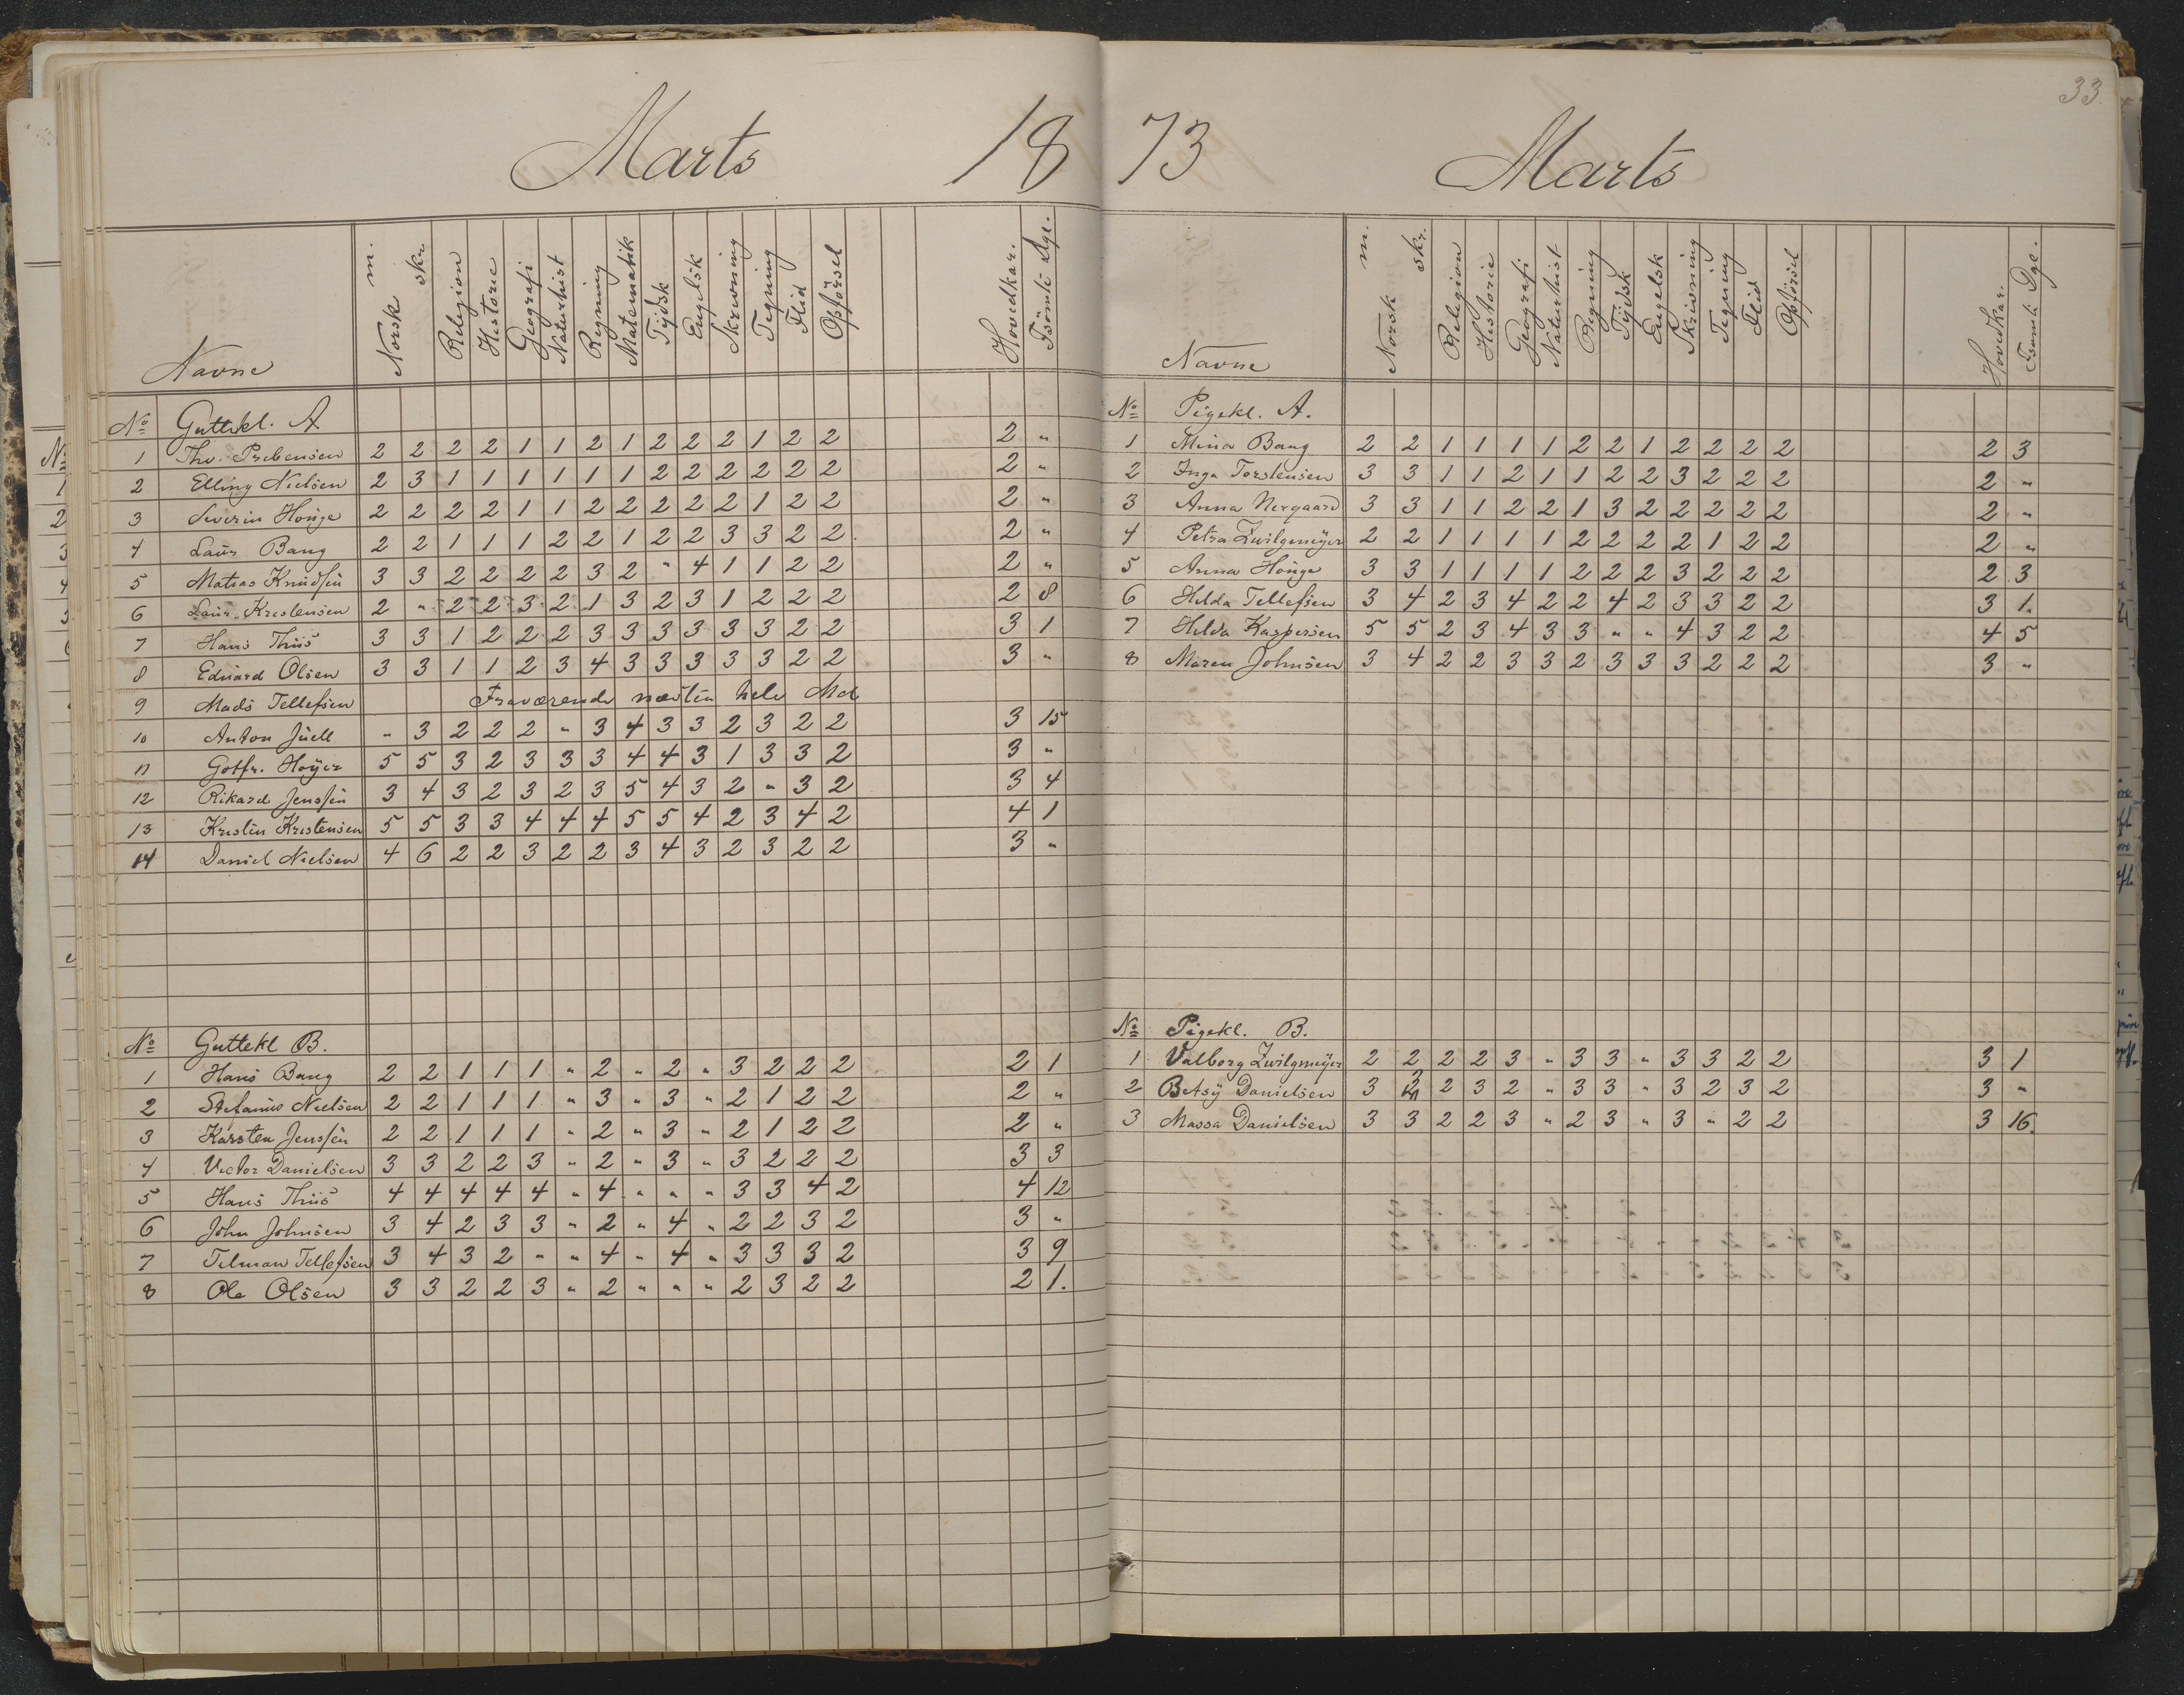 Marts 18
Navne Norsk m. skr. Religion Historie Geografi Naturhist Regning Matematik Tydsk Engelsk Skrivning Tegning Flid Opførsel Hovedkar. Fsömte Dge.
No Guttekl. A
1 Thv. Prebensen 2 2 2 2 1 1 2 1 2 2 2 1 2 2 2 "
2 Elling Nielsen 2 3 1 1 1 1 1 1 2 2 2 2 2 2 2 "
3 Severin Houge 2 2 2 2 1 1 2 2 2 2 2 1 2 2 2 "
4 Laur Bang 2 2 1 1 1 2 2 1 2 2 3 3 2 2. 2 "
5 Matias Knudsen 3 3 2 2 2 2 3 2 " 4 1 1 2 2 2 "
6 Laur. Kristensen 2 " 2 2 3 2 1 3 2 3 1 2 2 2 2 8
7 Hans Thiis 3 3 1 2 2 2 3 3 3 3 3 3 2 2 3 1
8 Eduard Olsen 3 3 1 1 2 3 4 3 3 3 3 3 2 2 3 "
9 Mads Tellefsen Fraværende næsten hele Md
10 Anton Juell " 3 2 2 2 " 3 4 3 3 2 3 2 2 3 15
11 Gotfr. Høyer 5 5 3 2 3 3 3 4 4 3 1 3 3 2 3 "
12 Rikard Jenssen 3 4 3 2 3 2 3 5 4 3 2 " 3 2 3 4
13 Kristen Kristensen 5 5 3 3 4 4 4 5 5 4 2 3 4 2 4 1
14 Daniel Nielsen 4 6 2 2 3 2 2 3 4 3 2 3 2 2 3 "
No Guttekl B.
1 Hans Bang 2 2 1 1 1 " 2 " 2 " 3 2 2 2 2 1
2 Stefanus Nielsen 2 2 1 1 1 " 3 " 3 " 2 1 2 2 2 "
3 Karsten Jenssen 2 2 1 1 1 " 2 " 3 " 2 1 2 2 2 "
4 Victor Danielsen 3 3 2 2 3 " 2 " 3 " 3 2 2 2 3 3
5 Hans Thiis 4 4 4 4 4 " 4 " " " 3 3 4 2 4 12
6 John Johnsen 3 4 2 3 3 " 2 " 4 " 2 2 3 2 3 "
7 Telman Tellefsen 3 4 3 2 " " 4 " 4 " 3 3 3 2 3 9
8 Ole Olsen 3 3 2 2 3 " 2 " " " 2 3 2 2 2 1.
33.
73 Marts
Navne Norsk m. skr. Religion Historie Geografi Naturhist Regning Tydsk Engelsk Skrivning Tegning Flid Opførsel Hovedkar. Fsömte Dge.
No Pigekl. A.
1 Mina Bang 2 2 1 1 1 1 2 2 1 2 2 2 2 2 3
2 Inga Torstensen 3 3 1 1 2 1 1 2 2 3 2 2 2 2 "
3 Anna Nergaard 3 3 1 1 2 2 1 3 2 2 2 2 2 2 "
4 Petra Zwilgmeyer 2 2 1 1 1 1 2 2 2 2 1 2 2 2 "
5 Anna Houge 3 3 1 1 1 1 2 2 2 3 2 2 2 2 3
6 Helda Tellefsen 3 4 2 3 4 2 2 4 2 3 3 2 2 3 1.
7 Helda Kaspersen 5 5 2 3 4 3 3 " " 4 3 2 2 4 5
8 Maren Johnsen 3 4 2 2 3 3 2 3 3 3 2 2 2 3 "
No Pigekl. B.
1 Valborg Zwilgmeyer 2 2 2 2 3 " 3 3 " 3 3 2 2 3 1
2 Betsy Danielsen 3 2 3 2 " 3 3 " 3 2 3 2 3 "
3 Massa Danielsen 3 3 2 2 3 " 2 3 " 3 " 2 2 3 16.